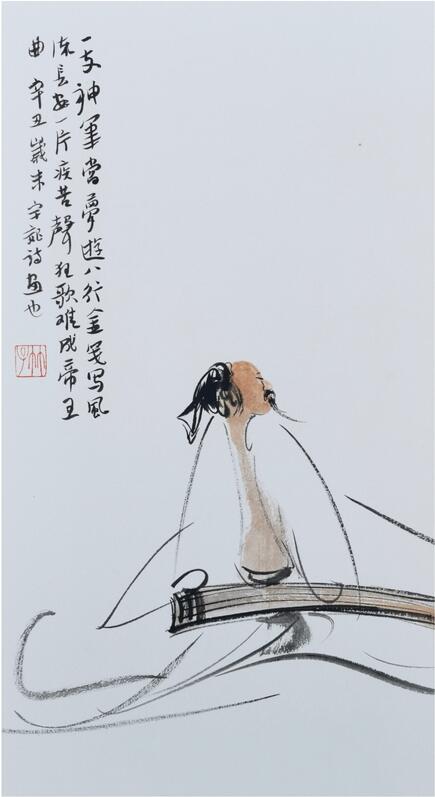 一支神筆當夢遊八行金箋写風
流長安一片疾苦聲狂歌难成帝王
曲 辛丑歲末宇龍诗画也